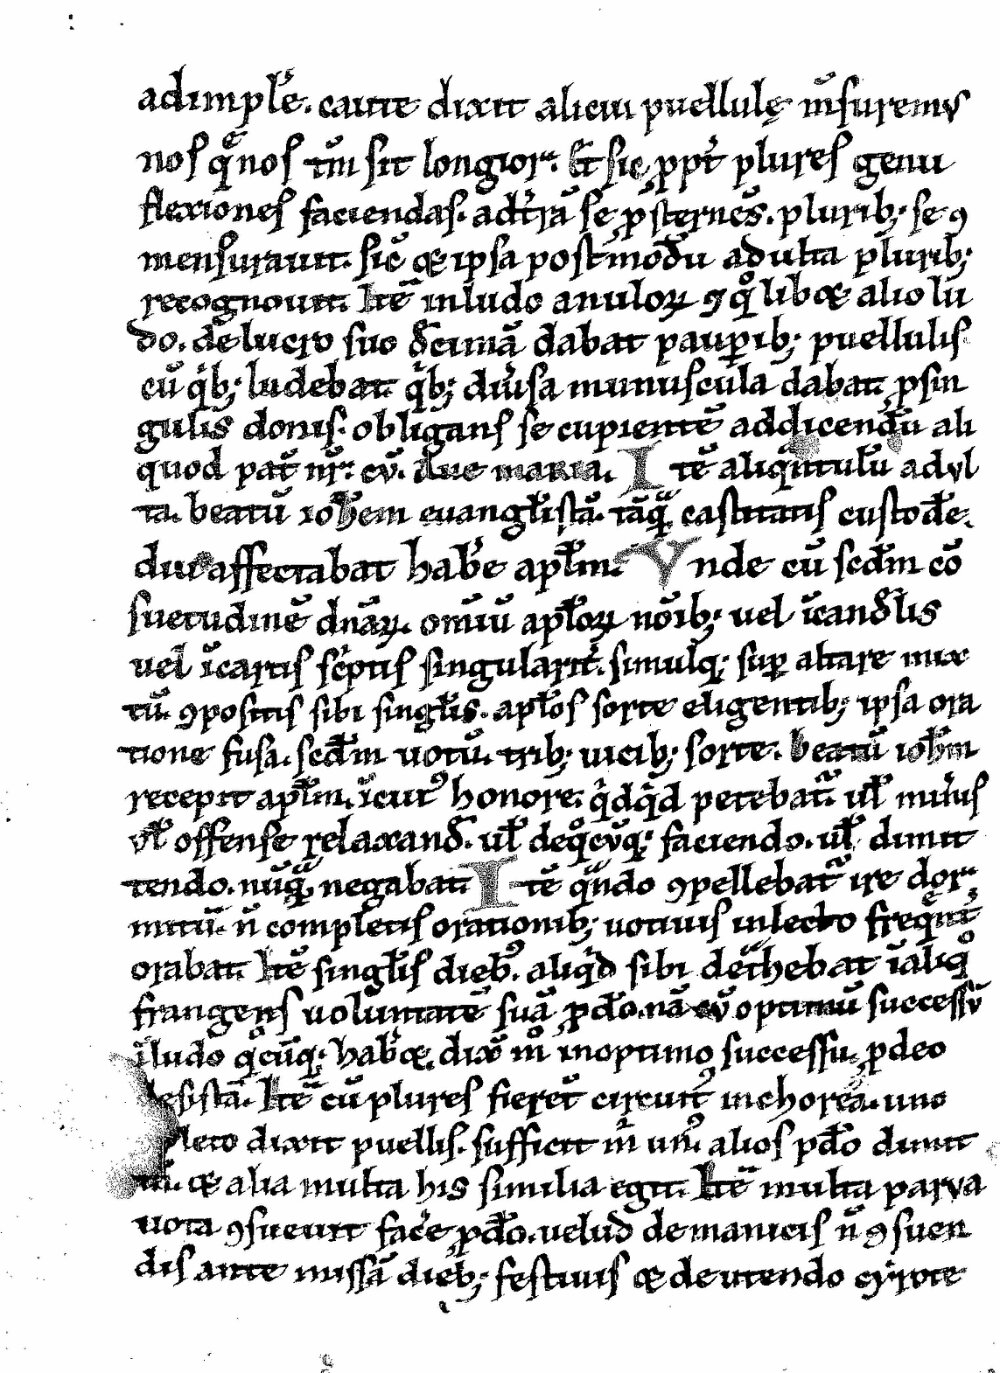 adimpl'e. caute dixit alicui puellulę m̄suremus
nos q̄ nos tm̄ sit longior. Et sic ꝓpt' plures genu
flexiones faciendas. adt'rā se ꝓsternēs. pluribꝫ se ꝯ
mensurauit. sic̄ & ipsa postmodū adulta pluribꝫ
recognouit. Itē inludo anuloꝝ ꝯ qͦlib& alio lu
do. de lucro suo decimā dabat paupibꝫ puellulis
cū qⁱbꝫ ludebat. qⁱbꝫ diu'sa munuscula dabat. ꝓ sin
gulis donis. obligans se cupientē addicendū ali
quod pat̄ nr̄. cū. Aue maria. Itē aliq̄ntulū adul
ta. beatū ioh̄em euangl̄istā. tāq̄ castitatis custodē.
diu affectabat hab'e apl̄m. Vnde cū scd̄m cō
suetudinē dn̄aꝝ. om̄iū apl̄oꝝ noībꝫ uel ī candelis
uel ī cartis sc'ptis singularit'. simulqꝫ sup altare mix
tū. ꝯpositis sibi singl̄is. apl̄os sorte eligentibꝫ ipsa ora
tione fusa. scd̄m uotū. tribꝫ uicibꝫ sorte. beatū ioh̄m
recepit apl̄m. ī cuiꝰ honore. qⁱdqⁱd petebat'. ul̄ iniu'ius
ul̄ offense relaxand. ul̄ deqͦcūqꝫ faciendo. ul̄ dimit
tendo. nūq̄ negabat. Itē qn̄do ꝯpellebat' ire dor
mitū. n̄ completis orationibꝫ uotiuis in lecto freq̄nt'
orabat. Itē singl̄is diebꝰ. aliqⁱd sibi det'hebat ī aliqͦ
frangens uoluntatē suā ꝓ dō. nā cū optimū successū
ī ludo qͦcūqꝫ hab'&. dix̄ m̊ inoptimo successu. ꝓ deo
desistā. Itē cū plures fierēt circuitꝰ in chorea. uno
pleto dixit puellis. sufficit m̄ unꝰ. alios ꝓ dō dimit
tā. & alia multa his similia egit. Itē multa parua
uota ꝯsueuit fac'e ꝓ dō. uelud de manicis n̄ ꝯsuen
dis ante missā diebꝫ festiuis & de utendo cyrote